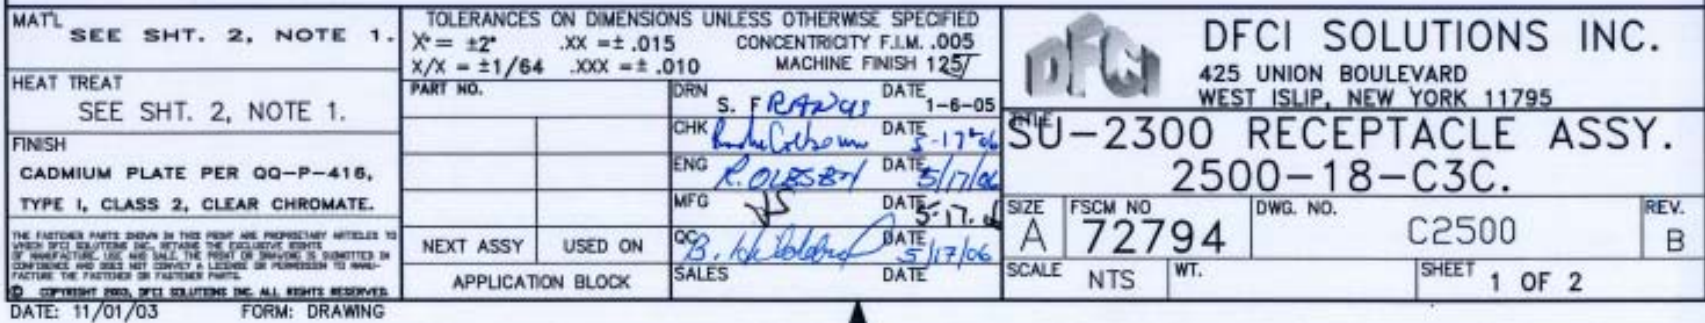 MAT'L
SEE SHT. 2, NOTE 1.
HEAT TREAT
SEE SHT. 2, NOTE 1.
FINISH
CADMIUM PLATE PER QQ-P-416,
TYPE I, CLASS 2, CLEAR CHROMATE.
THE FASTENER PARTS SHOWN IN THIS PRINT ARE PROPRIETARY ARTICLES TO
WHICH DFCI SOLUTIONS INC. RETAINS THE EXCLUSIVE RIGHTS
OF MANUFACTURE, USE AND SALE. THE PRINT OR DRAWING IS SUBMITTED IN
CONFIDENCE AND DOES NOT CONVEY A LICENSE OR PERMISSION TO MANU-
FACTURE THE FASTENER OR FASTENER PARTS.
© COPYRIGHT 2003, DFCI SOLUTIONS INC. ALL RIGHTS RESERVED.
DATE: 11/01/03 FORM: DRAWING
TOLERANCES ON DIMENSIONS UNLESS OTHERWISE SPECIFIED
X° = ±2° .XX =± .015 CONCENTRICITY F.I.M. .005
X/X = ±1/64 .XXX =± .010 MACHINE FINISH 125/
PART NO.
NEXT ASSY USED ON
APPLICATION BLOCK
DRN S. FRANCIS DATE 1-6-05
CHK DATE 5-17-06
ENG DATE 5/17/06
MFG DATE 5-17.
QC B. DATE 5/17/06
SALES DATE
DFCI
DFCI SOLUTIONS INC.
425 UNION BOULEVARD
WEST ISLIP, NEW YORK 11795
TITLE
SU-2300 RECEPTACLE ASSY.
2500-18-C3C.
SIZE A
FSCM NO 72794
DWG. NO. C2500
REV. B
SCALE NTS
WT.
SHEET 1 OF 2